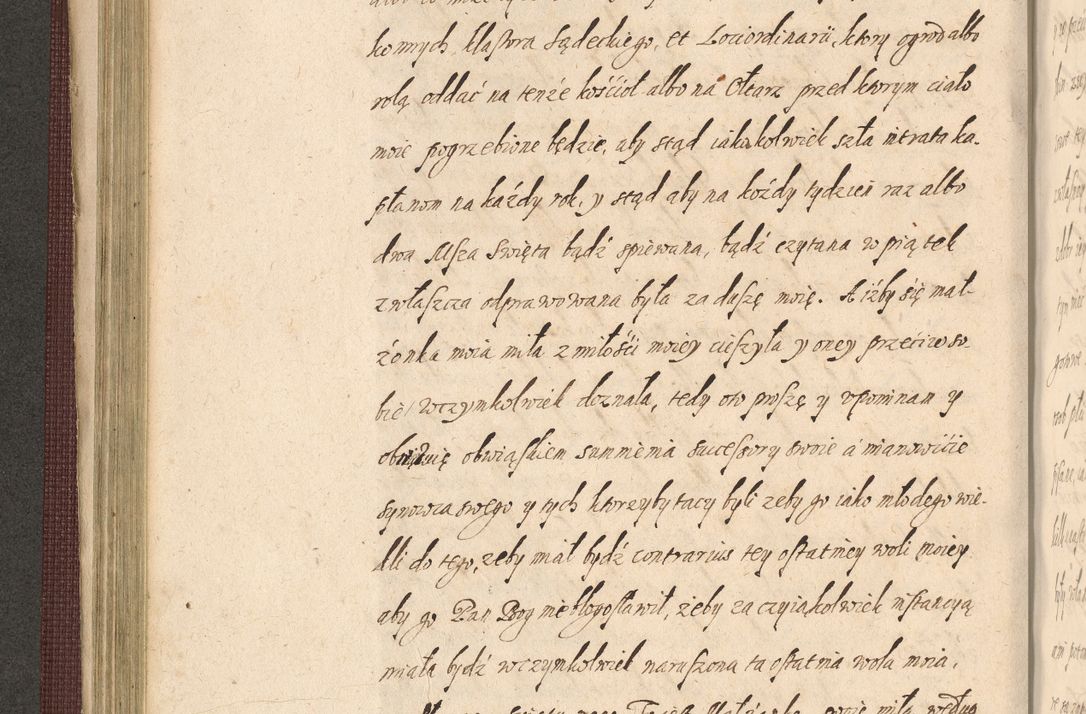 konnych klasztora Sądeckiego, et Lociordinarii, ktory ogrod albo
rolą oddać na tenże kościoł albo na Ołtarz przed ktorym ciało
moie pogrzebione będzie, aby stąd iakakolwiek szła intrata ka-
płanom na każdy rok, y stąd aby na kożdy tydzień raz albo
dwa Msza Swięta bądź spiewana, bądź czytana w piątek
zwłaszcza odprawowana była za duszę moię. A iżby się mał-
żonka moia miła z miłości moiey cieszyła y oney przeciwso-
bie wczymkolwiek doznała, tedy oto proszę y vpominam y
obwiązkiem sumnienia successory swoie a mianowicie
synowca swego y tych ktorzyby tacy byli zeby go iako młodego wie-
dli do tego, zeby miał bydź contrarius tey ostatniey woli moiey
aby go Pan Bog nie błogosławił, żeby za czyiąkolwiek instancyą
miała bydź wczymkolwiek naruszona ta ostatnia wola moia,
swoie miła według